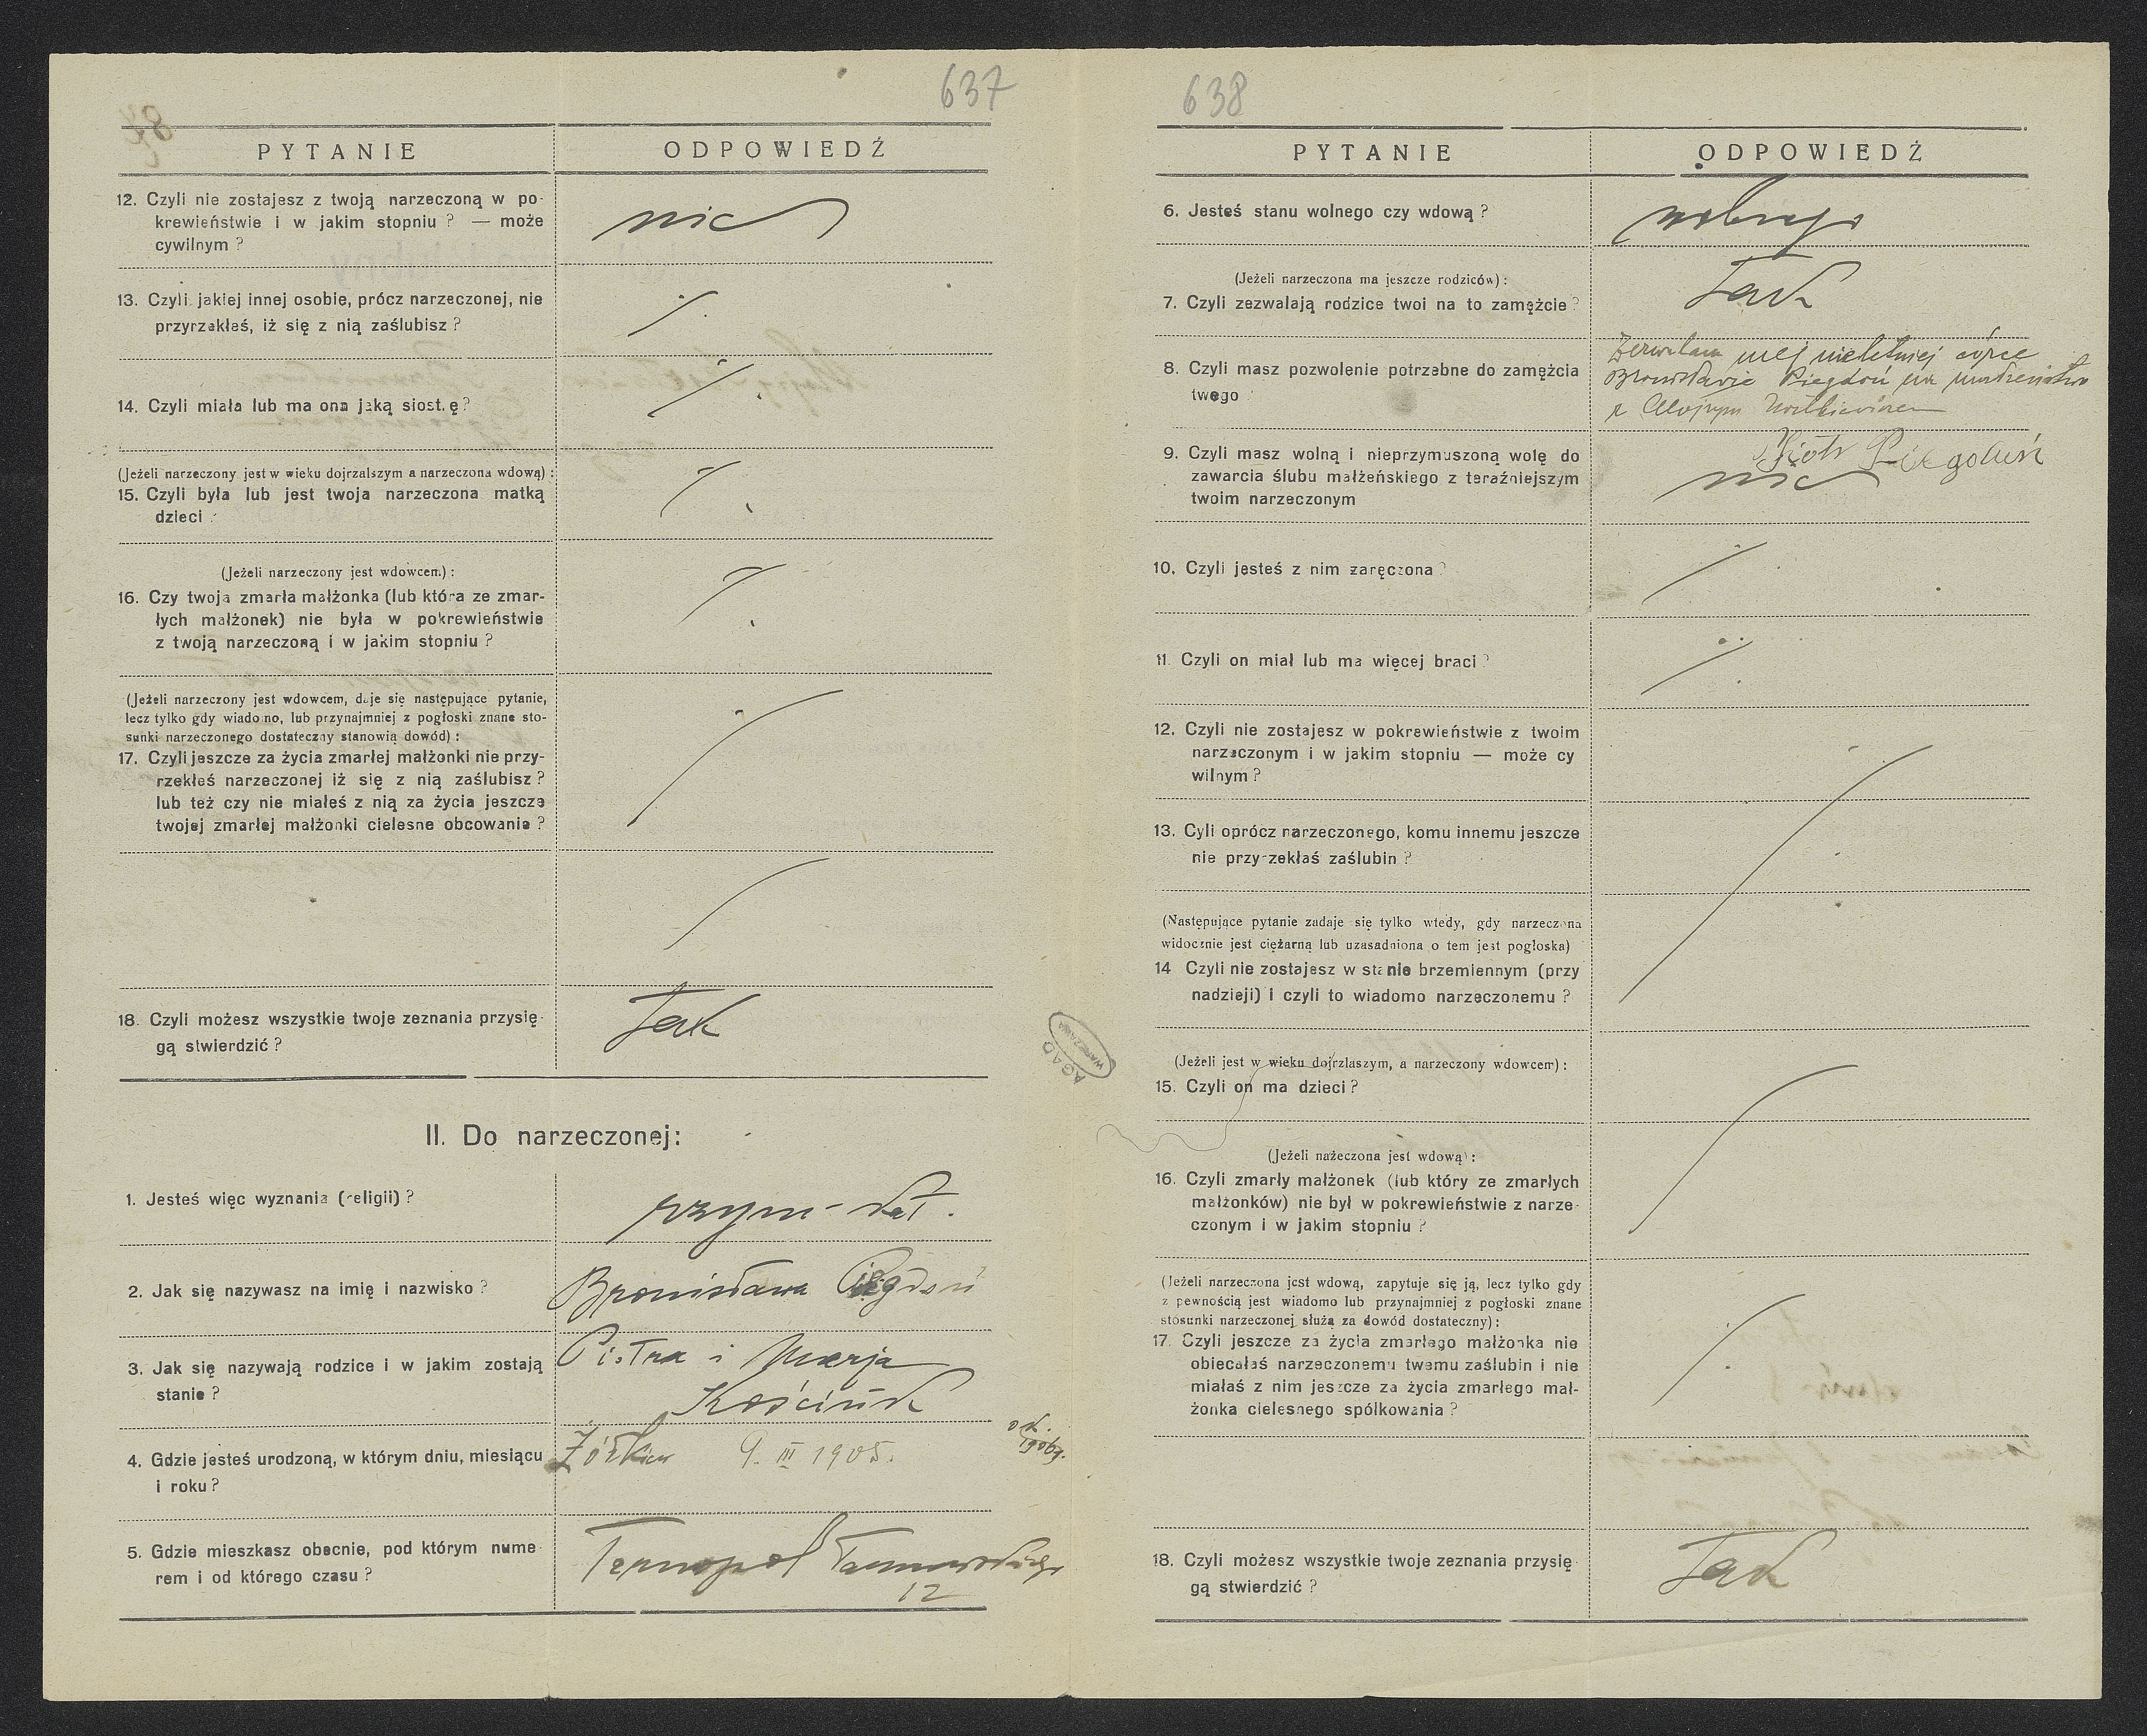 637
PYTANIE
ODPOWIEDŹ
12. Czyli nie zostajesz z twoją narzeczoną w po-
krewieństwie i w jakim stopniu ? — może
cywilnym ?
nie
13. Czyli jakiej innej osobie, prócz narzeczonej, nie
przyrzekłeś, iż się z nią zaślubisz ?
14. Czyli miała lub ma ona jaką siostrę ?
(Jeżeli narzeczony jest w wieku dojrzalszym a narzeczona wdową) :
15. Czyli była lub jest twoja narzeczona matką
dzieci
(Jeżeli narzeczony jest wdowcem.) :
16. Czy twoja zmarła małżonka (lub która ze zmar-
łych małżonek) nie była w pokrewieństwie
z twoją narzeczoną i w jakim stopniu ?
(Jeżeli narzeczony jest wdowcem, daje się następujące pytanie,
lecz tylko gdy wiadomo, lub przynajmniej z pogłoski znane sto-
sunki narzeczonego dostateczny stanowią dowód) :
17. Czyli jeszcze za życia zmarłej małżonki nie przy-
rzekłeś narzeczonej iż się z nią zaślubisz ?
lub też czy nie miałeś z nią za życia jeszcze
twojej zmarłej małżonki cielesne obcowanie ?
18. Czyli możesz wszystkie twoje zeznania przysię-
gą stwierdzić ?
Tak
II. Do narzeczonej:
1. Jesteś więc wyznania (religii) ?
rzym-kat.
2. Jak się nazywasz na imię i nazwisko ?
Bronisława Piegdoń
3. Jak się nazywają rodzice i w jakim zostają
stanie ?
Piotra i Marja
Kościuk
4. Gdzie jesteś urodzoną, w którym dniu, miesiącu
i roku ?
Żółkiew 9. III 1905.
od.
5. Gdzie mieszkasz obecnie, pod którym nume-
rem i od którego czasu ?
Tarnopol Tarnowskiego
12
AGAD
WARSZAWA
638
PYTANIE
ODPOWIEDŹ
6. Jesteś stanu wolnego czy wdową ?
wolnego
(Jeżeli narzeczona ma jeszcze rodziców) :
7. Czyli zezwalają rodzice twoi na to zamężcie ?
Tak
8. Czyli masz pozwolenie potrzebne do zamężcia
twego
Zezwalam mej nieletniej córce
Bronisławie Piegdoń na małżeństwo
z Alojzym
Piotr Piegdoń
9. Czyli masz wolną i nieprzymuszoną wolę do
zawarcia ślubu małżeńskiego z teraźniejszym
twoim narzeczonym
nie
10. Czyli jesteś z nim zaręczona ?
11. Czyli on miał lub ma więcej braci ?
12. Czyli nie zostajesz w pokrewieństwie z twoim
narzeczonym i w jakim stopniu — może cy
wilnym ?
13. Cyli oprócz narzeczonego, komu innemu jeszcze
nie przyrzekłaś zaślubin ?
(Następujące pytanie zadaje się tylko wtedy, gdy narzeczona
widocznie jest ciężarną lub uzasadniona o tem jest pogłoska)
14 Czyli nie zostajesz w stanie brzemiennym (przy
nadzieji) i czyli to wiadomo narzeczonemu ?
(Jeżeli jest w wieku dojrzlaszym, a narzeczony wdowcem) :
15. Czyli on ma dzieci ?
(Jeżeli nażeczona jest wdową) :
16. Czyli zmarły małżonek (lub który ze zmarłych
małżonków) nie był w pokrewieństwie z narze-
czonym i w jakim stopniu ?
(Jeżeli narzeczona jest wdową, zapytuje się ją, lecz tylko gdy
z pewnością jest wiadomo lub przynajmniej z pogłoski znane
stosunki narzeczonej służą za dowód dostateczny) :
17. Czyli jeszcze za życia zmarłego małżonka nie
obiecałaś narzeczonemu twemu zaślubin i nie
miałaś z nim jeszcze za życia zmarłego mał-
żonka cielesnego spółkowania ?
18. Czyli możesz wszystkie twoje zeznania przysię-
gą stwierdzić ?
Tak